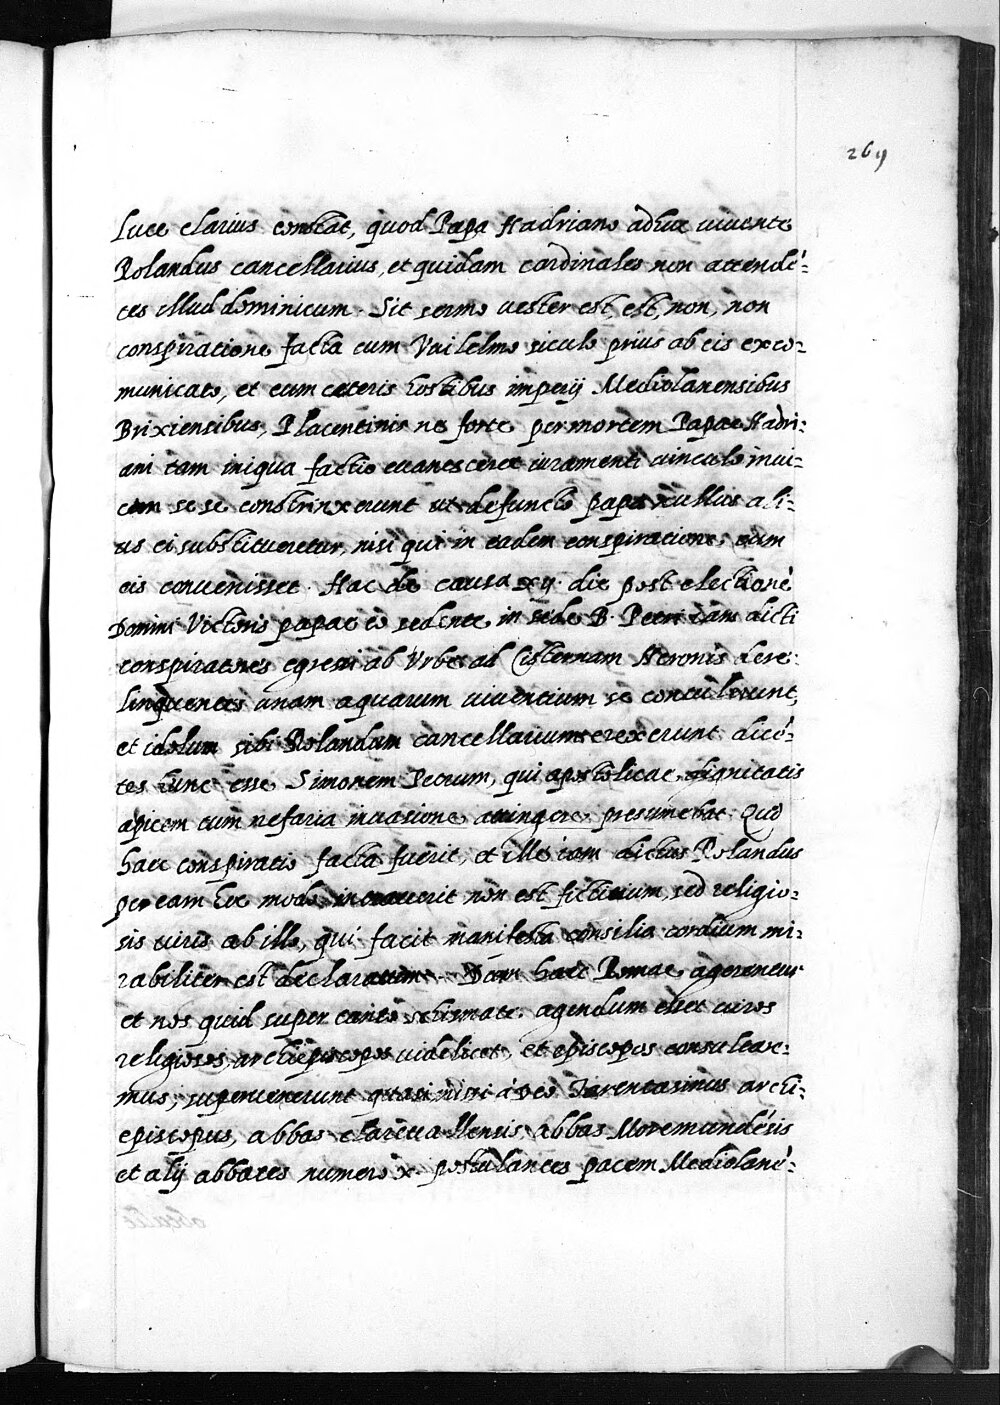 269
Luce clarius constat, quod Papa Hadriano adhuc uiuente
Rolandus cancellarius, et quidam cardinales non attendē-
tes illud dominicum. Sit sermo uester est est, non, non
conspiratione facta cum Vuilelmo siculo prius ab eis exco-
municato, et cum ceteris hostibus imperij Mediolanensibus
Brixiensibus, Placentinis ne forte per mortem Papae Hadri-
ani tam iniqua factio euanesceret iuramenti uinculo inui-
cem se se constrinxerunt ut defuncto papa nullus ali-
us ei substitueretur, nisi qui in eadem conspiratione cum
eis conuenisset. Hac de causa xij. die post electionē
Domini Victoris papae eo sedente in sede B. Petri iam dicti
conspiratores egressi ab Vrbe ad Cisternam Neronis dere-
linquentes uenam aquarum uiuentium se contulerunt,
et idolum sibi Rolandum cancellarium erexerunt dicē-
tes hunc esse Simonem Petrum, qui apostolicae dignitatis
apicem cum nefaria inuasione attingere presumebat. Quod
haec conspiratio facta fuerit, et ille iam dictus Rolandus
per eam hoc modo intrauerit non est fictitium, sed religio-
sis uiris ab illo, qui facit manifesta consilia cordium mi-
rabiliter est declaratum. Dum haec Romae agerentur
et nos quid super tanto schismate agendum esset uiros
religiosos archiepiscopos uidelicet, et episcopos consulere-
mus, superuenerunt quasi missi à Deo Tarentasinus archi-
episcopus, abbas clareuallensis, abbas Moremundēsis
et alij abbates numero x. postulantes pacem Mediolanē-